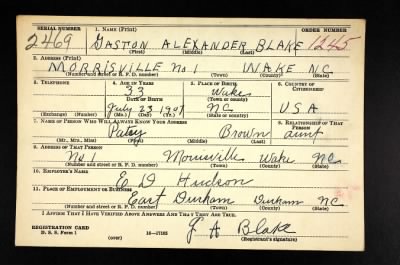 SERIAL NUMBER 1. NAME (Print) ORDER NUMBER
2469 GASTON ALEXANDER BLAKE 1245
(First) (Middle) (Last)
2. ADDRESS (Print)
MORRISVILLE No 1 WAKE N.C.
(Number and street or R. F. D. number) (Town) (County) (State)
3. TELEPHONE 4. AGE IN YEARS 5. PLACE OF BIRTH 6. COUNTRY OF CITIZENSHIP
33 Wake
DATE OF BIRTH (Town or county)
July 23 1907 NC USA
(Exchange) (Number) (Mo.) (Day) (Yr.) (State or country)
7. NAME OF PERSON WHO WILL ALWAYS KNOW YOUR ADDRESS 8. RELATIONSHIP OF THAT PERSON
Patsy Brown aunt
(Mr., Mrs., Miss) (First) (Middle) (Last)
9. ADDRESS OF THAT PERSON
No 1 Morrisville Wake NC
(Number and street or R. F. D. number) (Town) (County) (State)
10. EMPLOYER'S NAME
E D Hudson
11. PLACE OF EMPLOYMENT OR BUSINESS
East Durham Durham NC
(Number and street or R. F. D. number) (Town) (County) (State)
I AFFIRM THAT I HAVE VERIFIED ABOVE ANSWERS AND THAT THEY ARE TRUE.
REGISTRATION CARD
D. S. S. Form 1 (over) 16—17105 (Registrant's signature)
A Blake